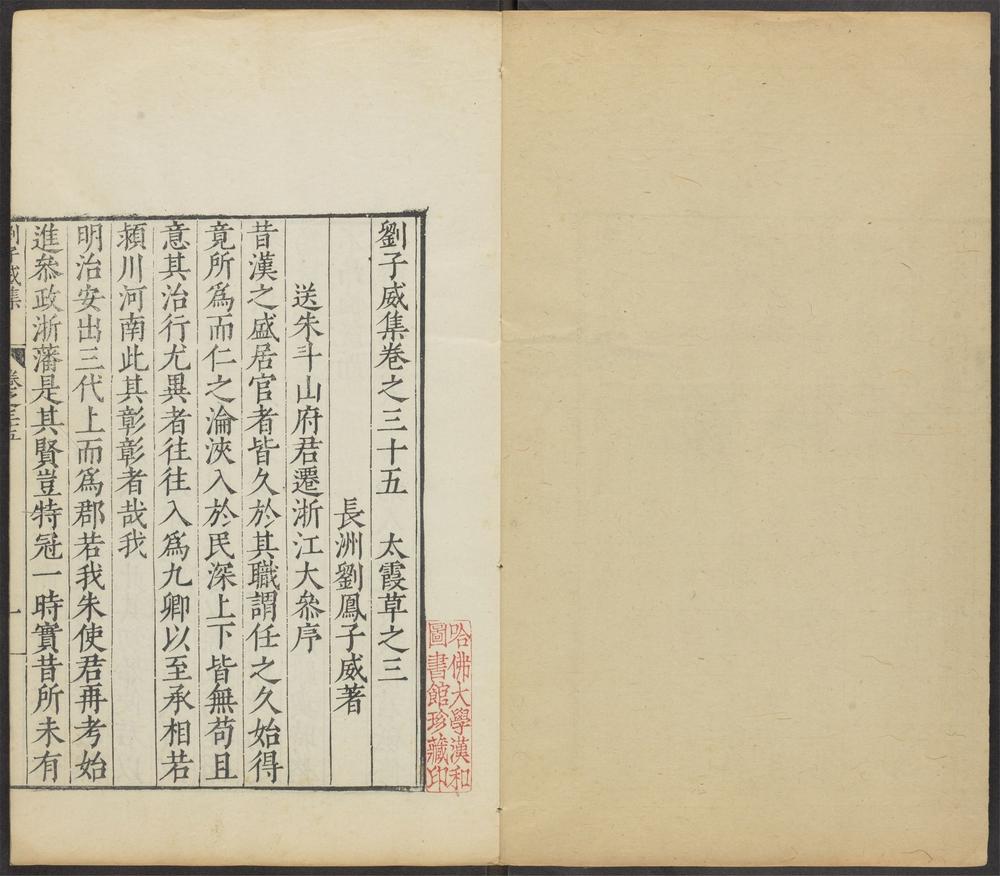 劉子威集卷之三十五　太霞草之三
長洲劉鳳子威著
送朱斗山府君遷浙江大叅序
昔漢之盛居官者皆久於其職謂任之久始得
竟所爲而仁之淪浹入於民深上下皆無苟且
意其治行尤異者往往入爲九卿以至承相若
頴川河南此其彰彰者哉我
明治安出三代上而爲郡若我朱使君再考始
進叅政浙藩是其賢豈特冠一時實昔所未有
劉子威集
卷之三十五
一
哈佛大學漢和
圖書館珍藏印